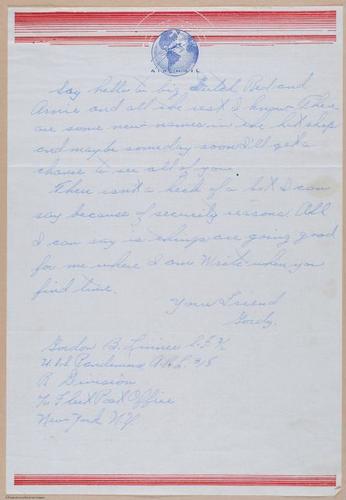 AIR MAIL
Say hello to big Butch Red and
Arnie and all the rest I know. There
are some new names in the hot shop
and maybe someday soon I'll get a
chance to see all of you.
There isn't a heck of a lot I can
say because of security reasons. All
I can say is things are going good
for me where I am. Write when you
find time.
Your Friend
Gordy.
Gordon B.
U.S.S.
R Division
℅ Fleet Post Office
New York N.Y.